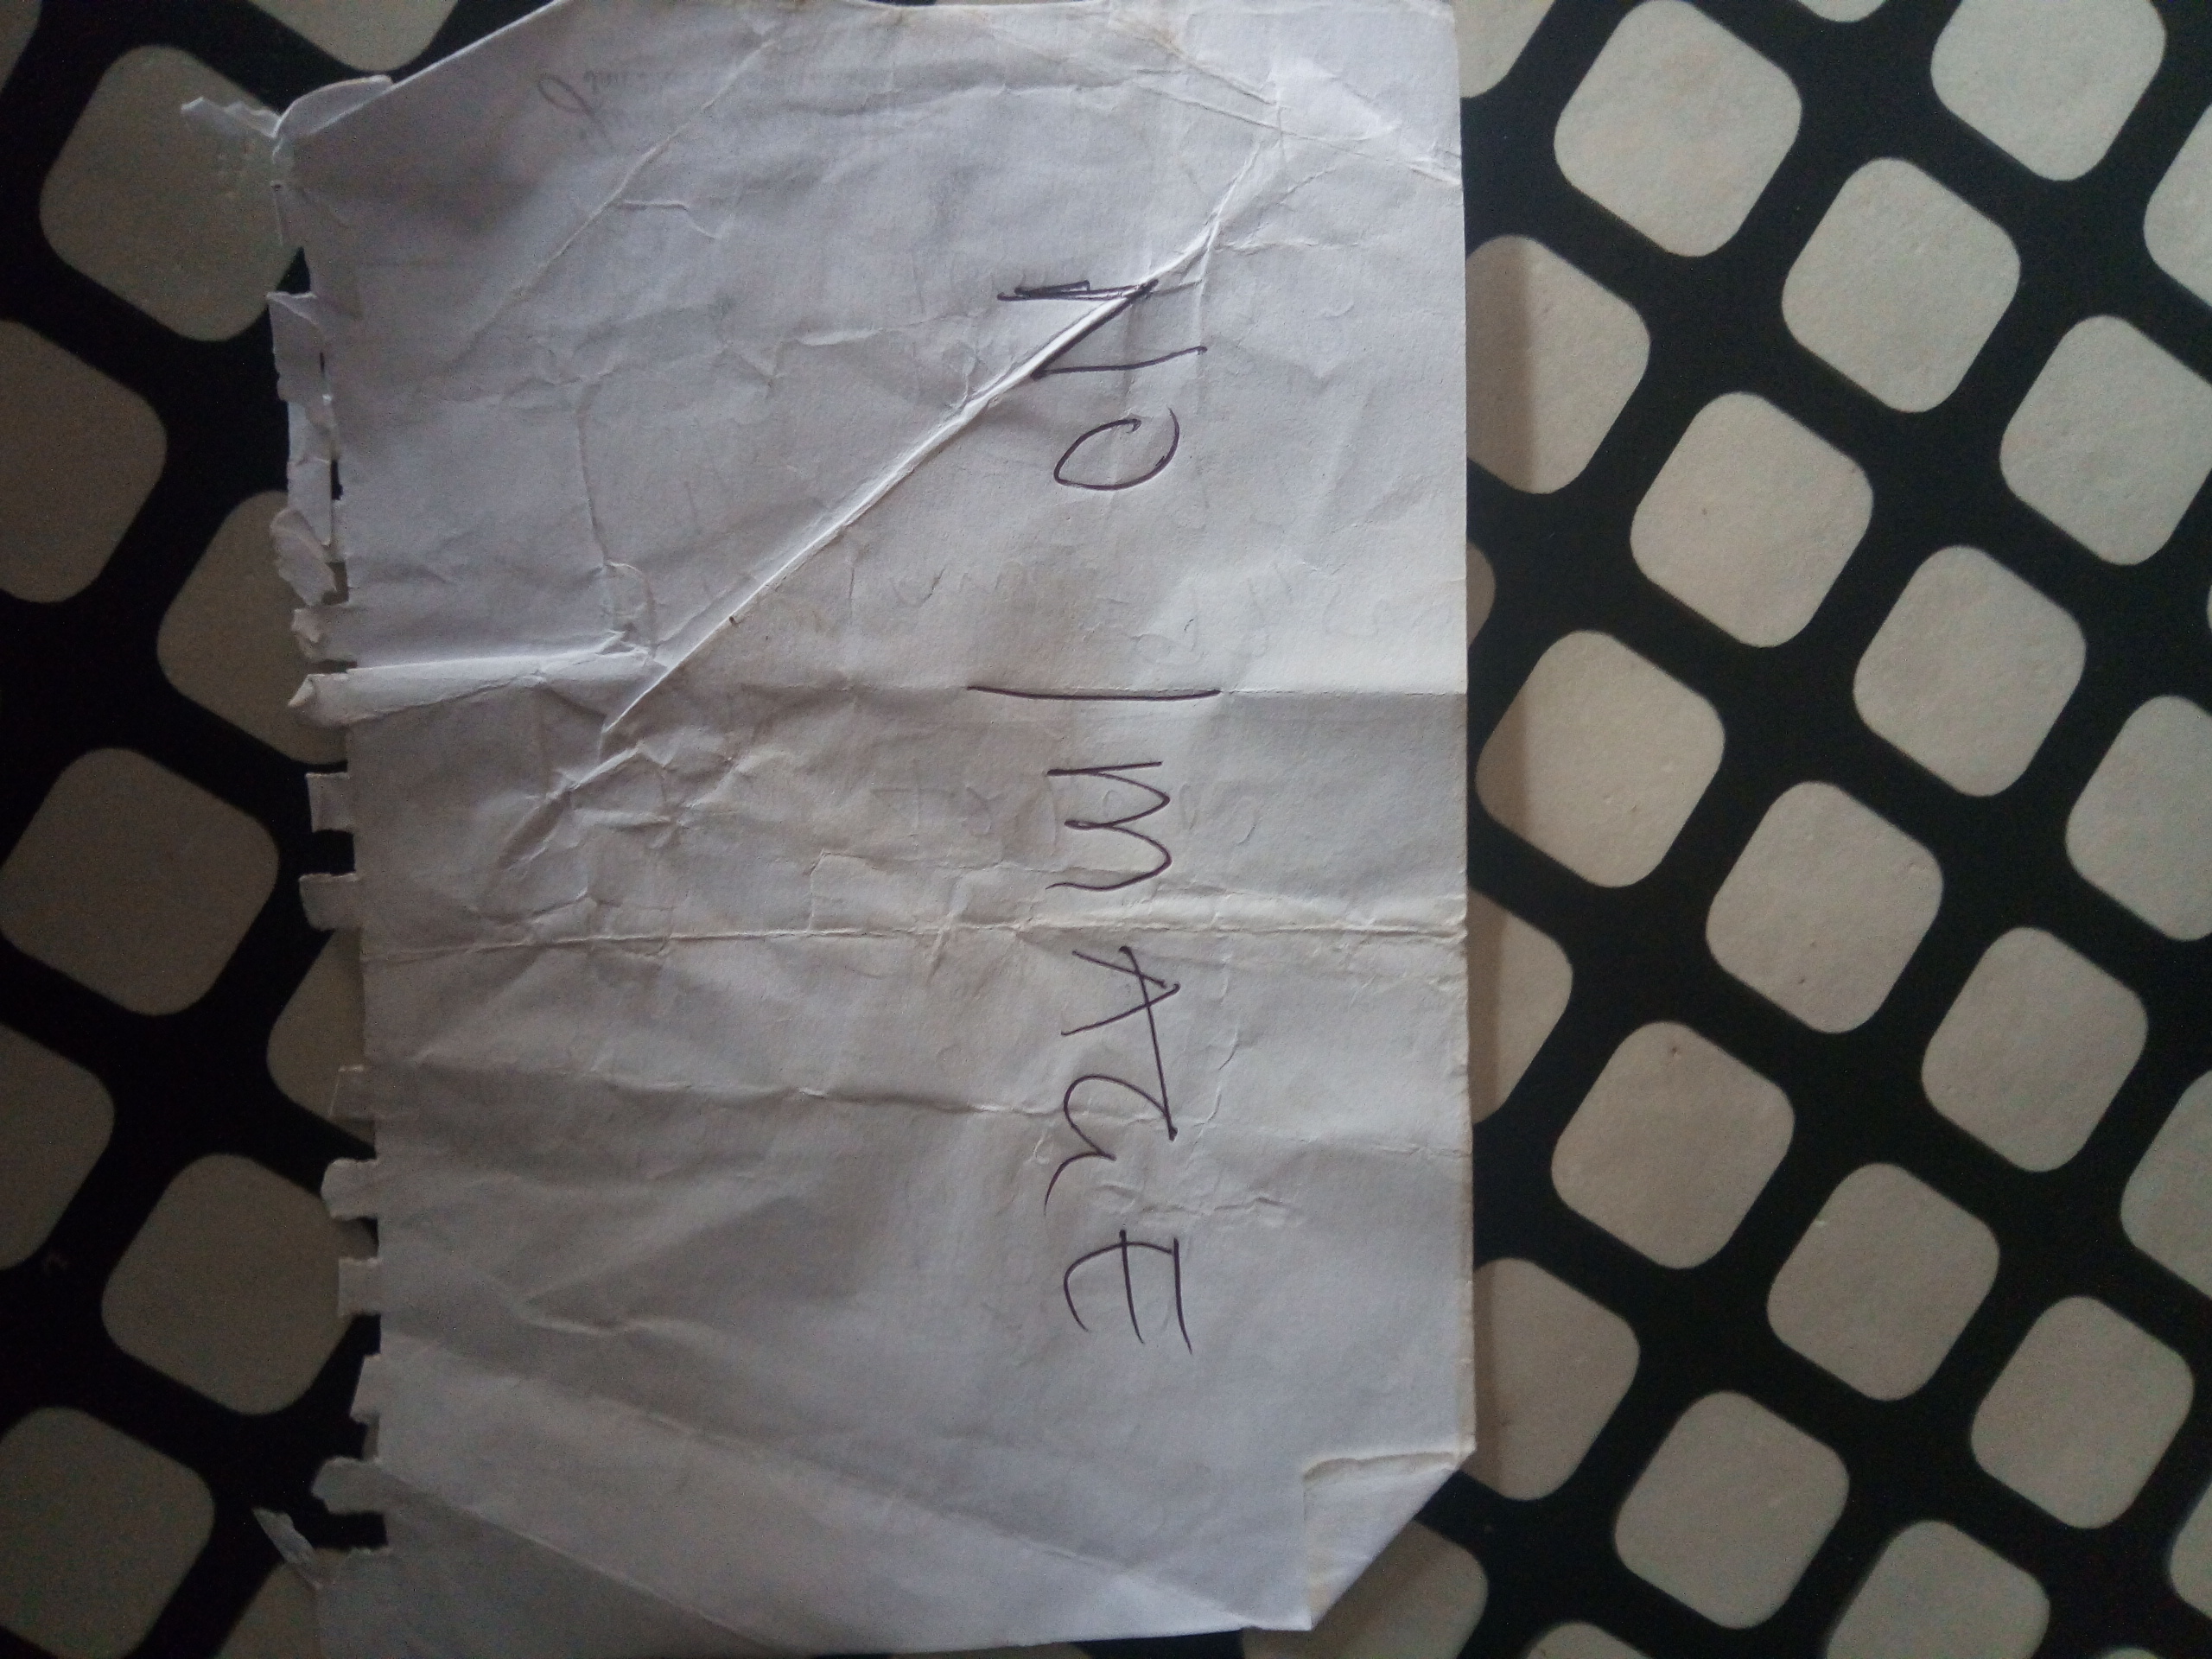 NO IMAGE